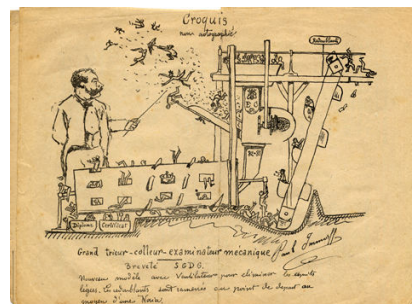 Croquis
non autographié
Redoublants
Diplôme
Certificat
Grand trieur-colleur-examinateur mécanique
Breveté S.G.D.G.
Nouveau modèle avec Ventilateur pour éliminer les esprits
légers. Les redoublants sont ramenés au point de départ au
moyen d'une Noria.